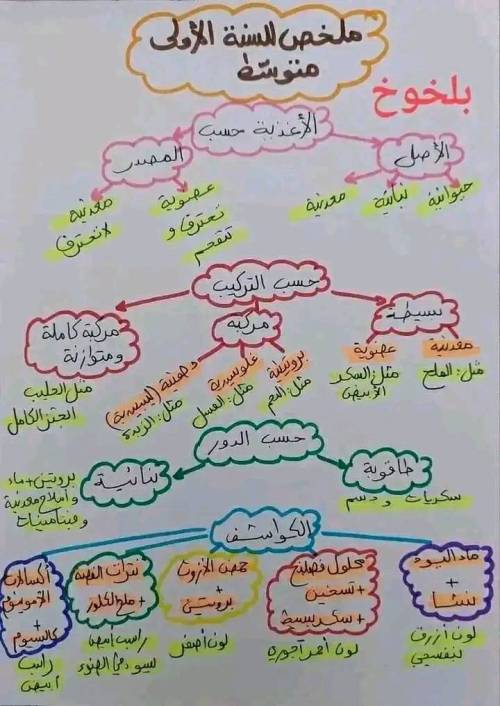 ملخص للسنة الأولى
متوسّط
بلخوخ
الأغذية حسب
الأصل
المصدر
حيوانية
نباتية
معدنية
عضوية
تحترق و
تتفحم
معدنية
لا تحترق
حسب التركيب
بسيطة
مركبة
مركبة كاملة
ومتوازنة
معدنية
مثل: الملح
عضوية
مثل: السكر
الأبيض
بروتيدية
مثل:
غلوسيدية
مثل: العسل
دهنية (ليبيدية)
مثل: الزبدة
مثل الحليب
الجبن الكامل
حسب الدور
طاقوية
بنائية
سكريات و دسم
بروتين + ماء
و أملاح معدنية
و فيتامينات
الكواشف
ماء اليود
+
نشا
لون أزرق
بنفسجي
محلول فهلينج
+ تسخين
+ سكر بسيط
لون أحمر آجوري
حمض الآزوت
+
بروتين
لون أصفر
نترات الفضة
+ ملح الكلور
راسب أبيض
يسود في الضوء
أكسالات
الأمونيوم
+
كالسيوم
راسب
أبيض